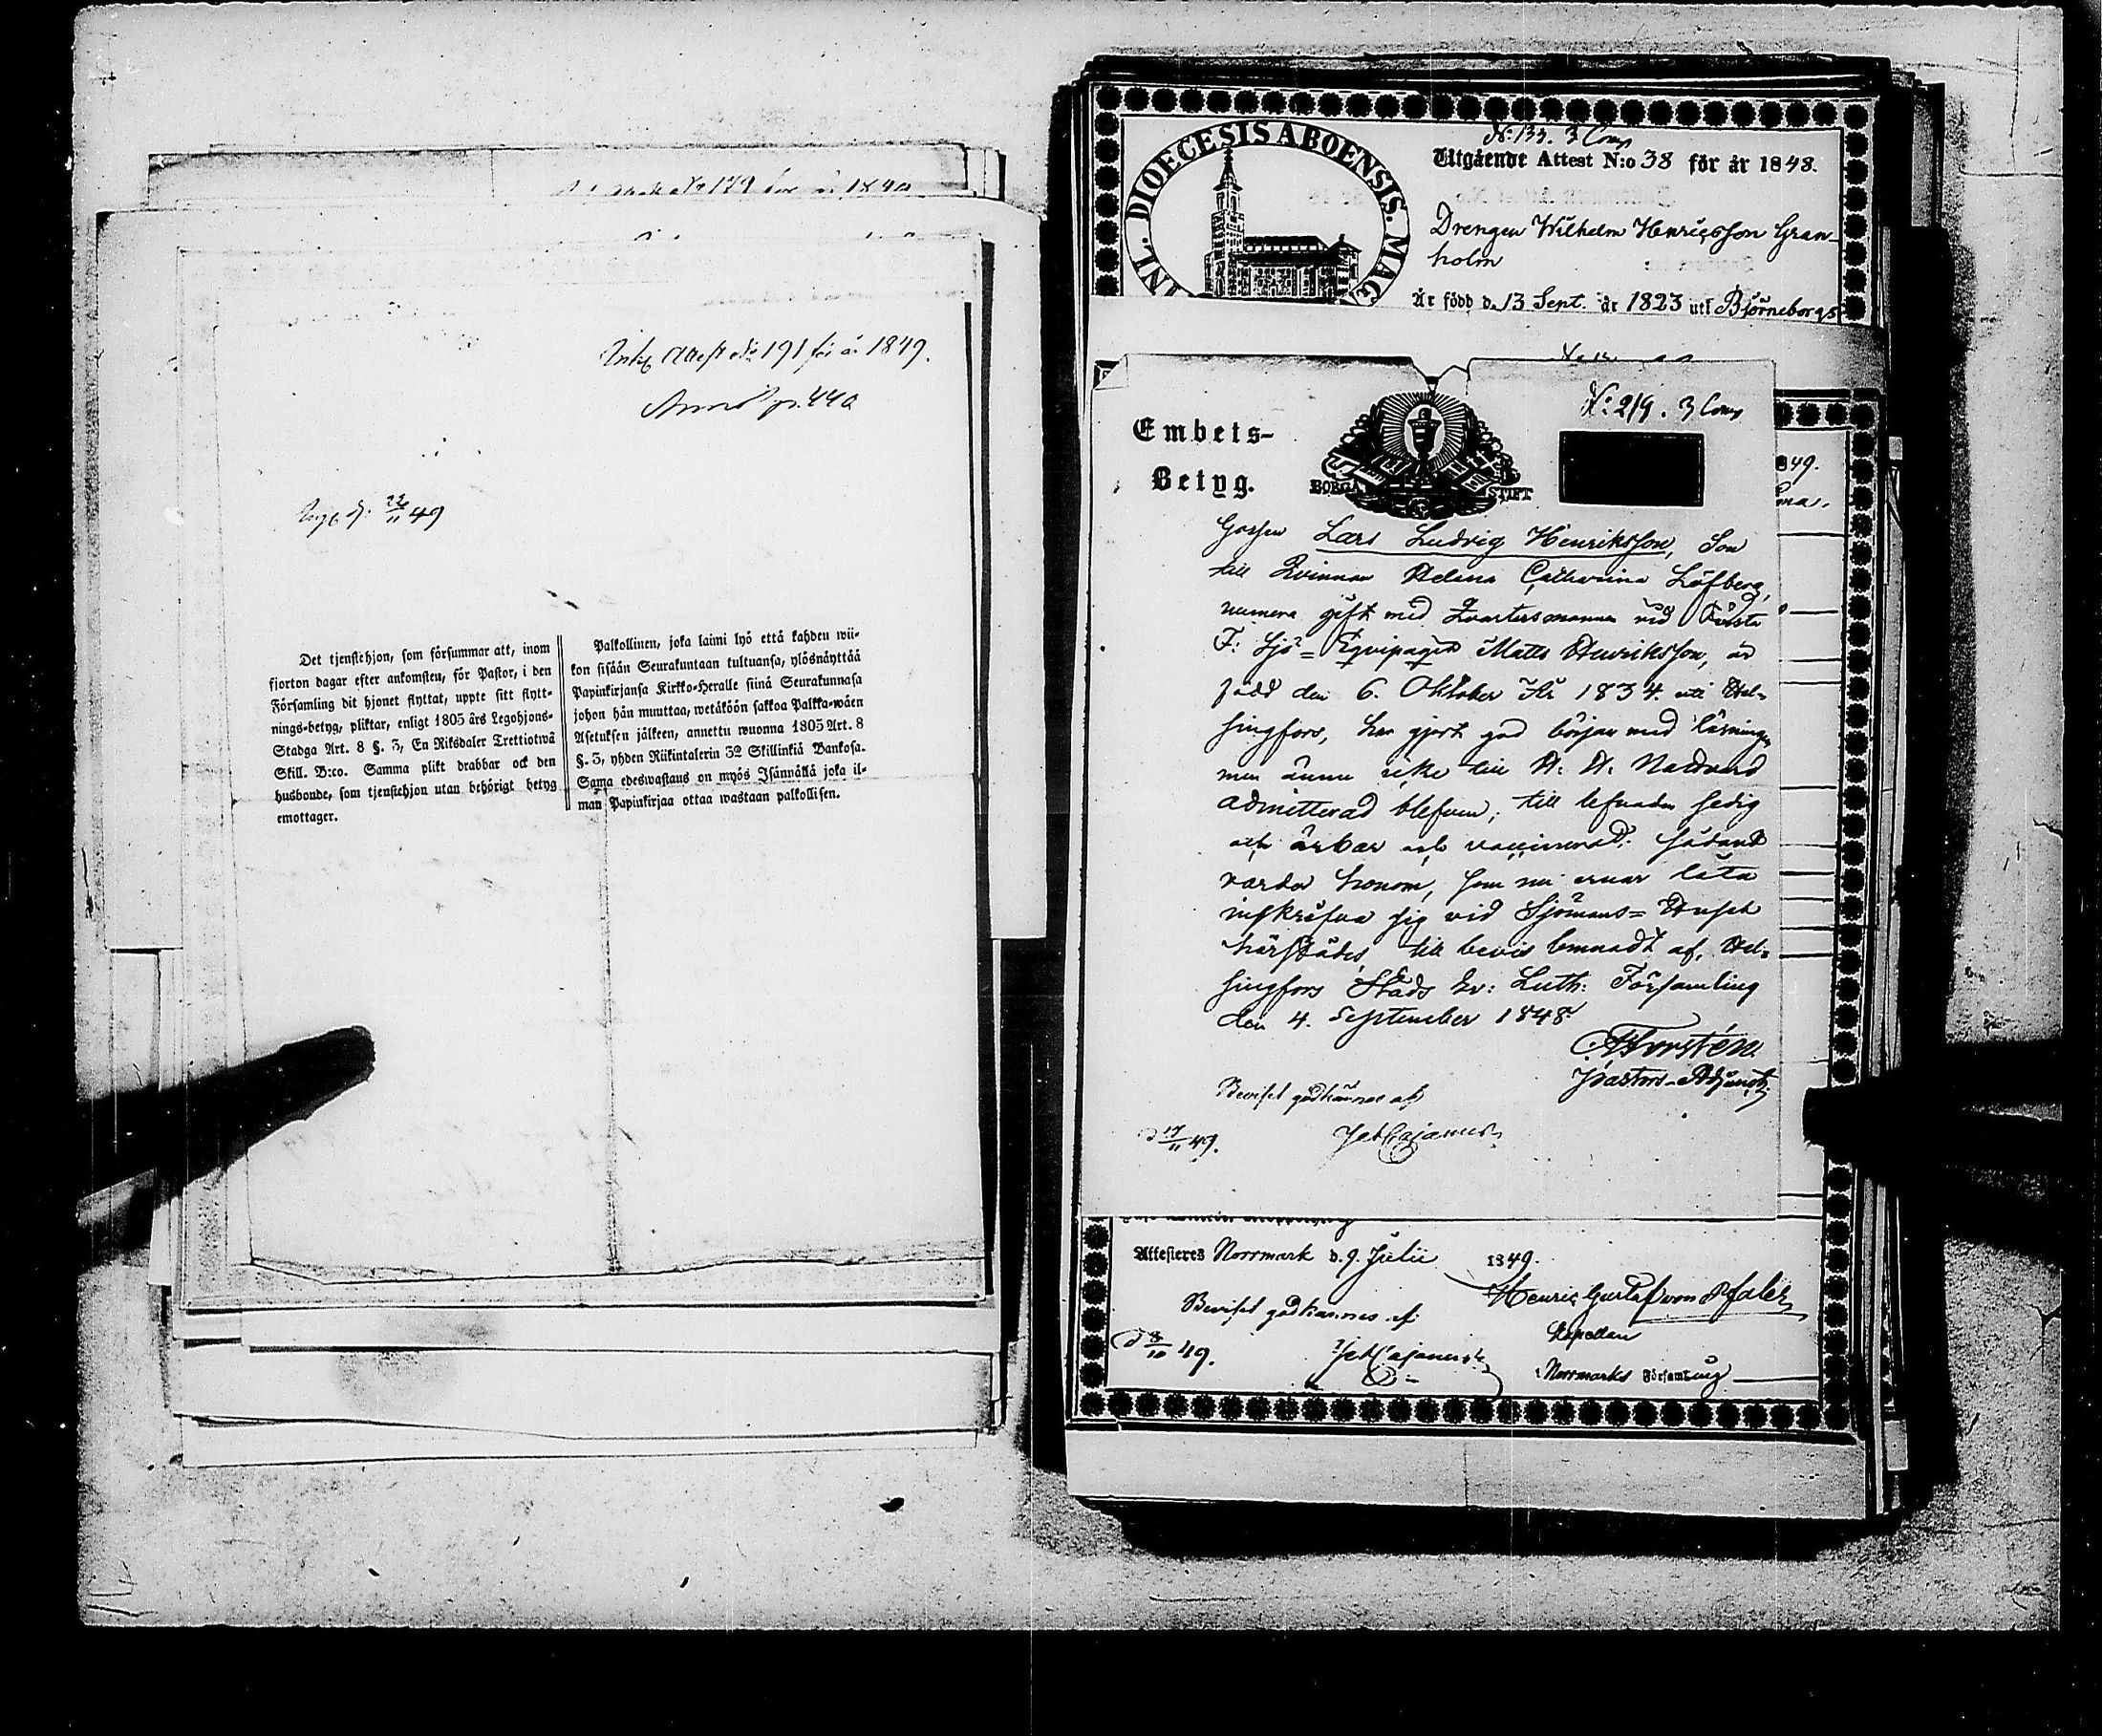 Attest No 191 för år 1849.
d: 22/11 49
Det tjenstehjon, som försummar att, inom
fjorton dagar efter ankomsten, för Pastor, i den
Församling dit hjonet flyttat, uppte sitt flytt-
nings-betyg, pliktar, enligt 1805 års Legohjons-
Stadga Art. 8 §. 3, En Riksdaler Trettiotwå
Skill. B:co. Samma plikt drabbar ock den
husbonde, som tjenstehjon utan behörigt betyg
emottager.
Palkollinen, joka laimi lyö että kahden wii-
kon sisään Seurakuntaan tultuansa, ylösnäyttää
Papinkirjansa Kirkko-Heralle siinä Seurakunnasa
johon hän muuttaa, wetäköön sakkoa Palkka-wäen
Asetuksen jälkeen, annettu wuonna 1805 Art. 8
§. 3, yhden Riikintalerin 32 Skillinkiä Bankosa.
Sama edeswastaus on myös Isännällä joka il-
man Papinkirjaa ottaa wastaan palkollisen.
DIOECESIS ABOENSIS. MAG
No 133. 3 Comp
Utgående Attest N:o 38 för år 1848.
Drengen Wilhelm Henricsson Gran-
holm
Är född d. 13 Sept. år 1823 uti Björneborgs
No 219. 3 Comp
Embets-
Betyg.
BORGÅ STIFT
849.
Gossen Lars Ludvig Henriksson, Son
till Qvinnan Helena Catharina Löfberg,
numera gift med Qvartersmannen vid Första
F: Sjö-Equipaget Matts Henriksson, är
född den 6. Oktober År 1834. uti Hel-
singfors, har gjort god början med läsning,
men ännu icke till H. H. Nattvard
admitterad blefven; till lefnaden sedig
och ärbar och vaccinerad. Sådant
varder honom, som nu ernar låta
inskrifva sig vid Sjömans-Huset
härstädes till bevis lemnadt af, Hel-
singfors Stads Ev: Luth: Församling
den 4. September 1848.
Forstén.
Pastors-Adjunct.
Beviset godkännes af
d 17/11 49.
Cajanus
Attesteres Norrmark d. 9. Julii 1849.
Henric Gustaf von Pfaler
Beviset godkännes af
Kapellan
d 8/10 49.
Cajanus
i Norrmarks Församling